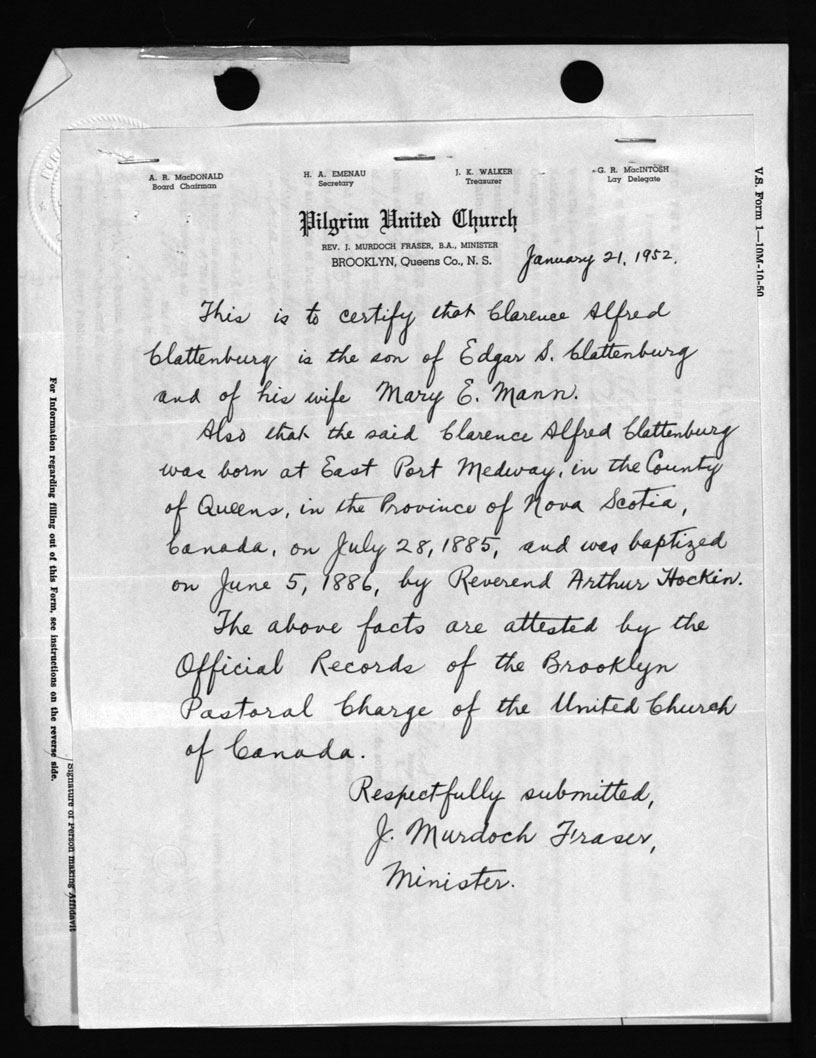 A. R. MacDONALD
Board Chairman
H. A. EMENAU
Secretary
J. K. WALKER
Treasurer
G. R. MacINTOSH
Lay Delegate
Pilgrim United Church
REV. J. MURDOCH FRASER, B.A., MINISTER
BROOKLYN, Queens Co., N. S.
January 21, 1952.
This is to certify that Clarence Alfred
Clattenburg is the son of Edgar S. Clattenburg
and of his wife Mary E. Mann.
Also that the said Clarence Alfred Clattenburg
was born at East Port Medway, in the County
of Queens, in the Province of Nova Scotia,
Canada, on July 28, 1885, and was baptized
on June 5, 1886, by Reverend Arthur Hockin.
The above facts are attested by the
Official Records of the Brooklyn
Pastoral Charge of the United Church
of Canada.
Respectfully submitted,
J. Murdoch Fraser,
Minister.
V.S. Form 1—10M-10-50
For Information regarding filling out of this Form, see instructions on the reverse side.
Signature of Person making Affidavit